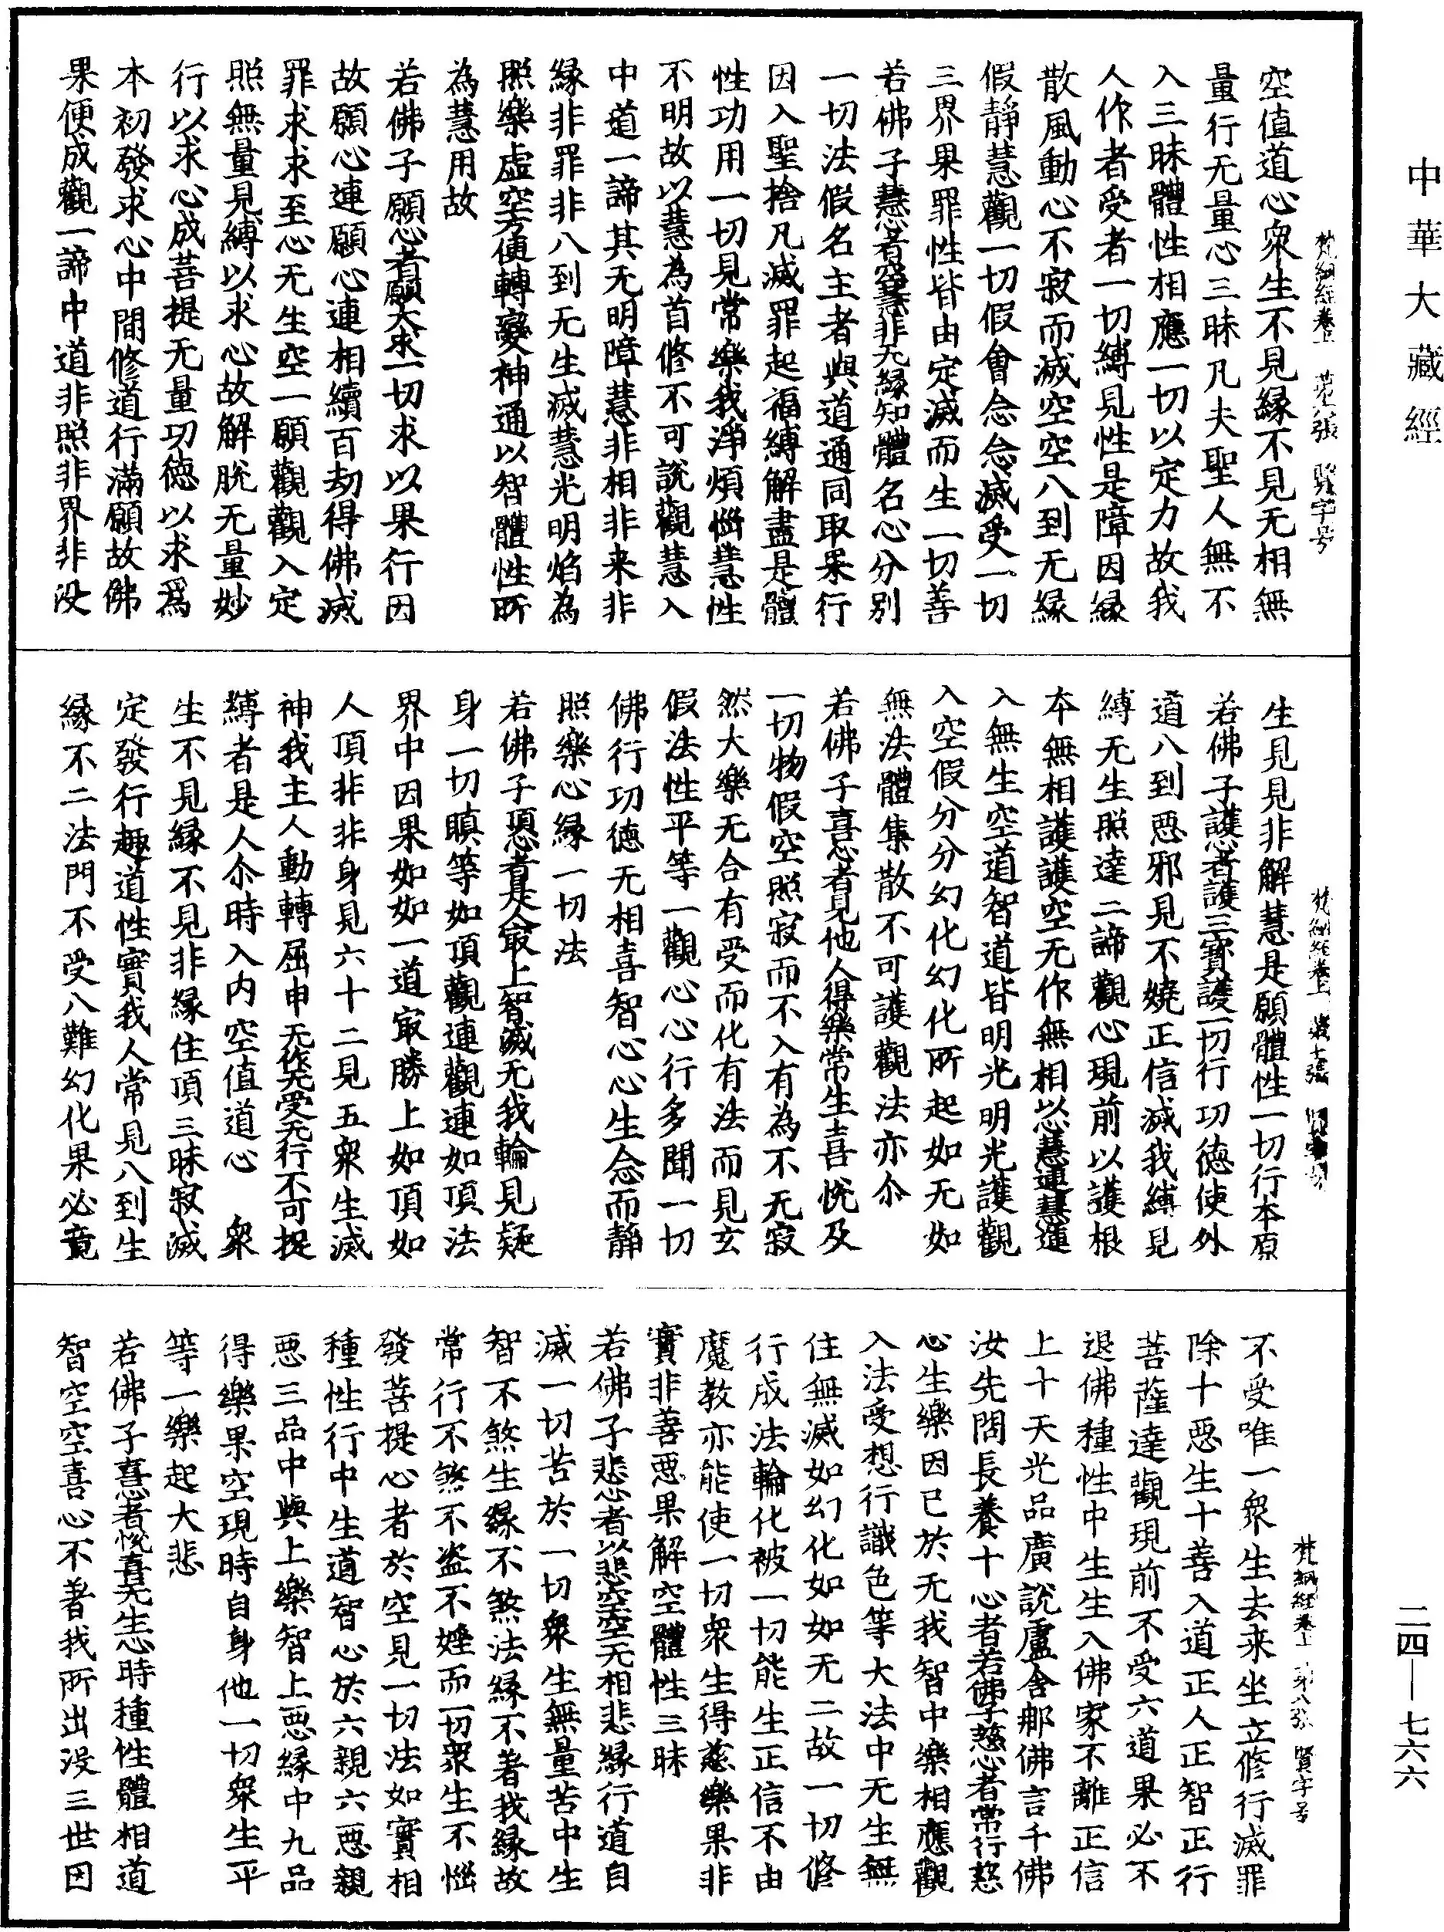 中華大藏經
梵網經卷上　第六張　賢字号
空值道心衆生不見緣不見无相無
量行无量心三昧凡夫聖人無不
入三昧體性相應一切以定力故我
人作者受者一切縛見性是障因緣
散風動心不寂而滅空空八到无緣
假靜慧觀一切假會念念滅受一切
三界果罪性皆由定滅而生一切善
若佛子慧心者空慧非无緣知體名心分別
一切法假名主者與道通同取果行
因入聖捨凡滅罪起福縛解盡是體
性功用一切見常樂我淨煩惱慧性
不明故以慧為首修不可說觀慧入
中道一諦其无明障慧非相非来非
緣非罪非八到无生滅慧光明焰為
照樂虛空方便轉變神通以智體性所
為慧用故
若佛子願心者願大求一切求以果行因
故願心連願心連相續百劫得佛滅
罪求求至心无生空一願觀觀入定
照無量見縛以求心故解脫无量妙
行以求心成菩提无量功德以求為
本初發求心中間修道行滿願故佛
果便成觀一諦中道非照非界非没
梵網經卷上　第七張
生見見非解慧是願體性一切行本原
若佛子護心者護三寶護一切行功德使外
道八到惡邪見不嬈正信滅我縛見
縛无生照達二諦觀心現前以護根
本無相護護空无作無相以心慧連慧連
入無生空道智道皆明光明光護觀
入空假分分幻化幻化所起如无如
無法體集散不可護觀法亦尒
若佛子喜心者見他人得樂常生喜悅及
一切物假空照寂而不入有為不无寂
然大樂无合有受而化有法而見玄
假法性平等一觀心心行多聞一切
佛行功德无相喜智心心生念而靜
照樂心緣一切法
若佛子頂心者是人㝡上智滅无我輪見疑
身一切瞋等如頂觀連觀連如頂法
界中因果如如一道㝡勝上如頂如
人頂非非身見六十二見五衆生滅
神我主人動轉屈申无作无受无行不可捉
縛者是人尒時入内空值道心　衆
生不見緣不見非緣住頂三昧寂滅
定發行趣道性實我人常見八到生
緣不二法門不受八難幻化果必竟
梵網經卷上　第八張　賢字号
不受唯一衆生去来坐立修行滅罪
除十惡生十善入道正人正智正行
菩薩達觀現前不受六道果必不
退佛種性中生生入佛家不離正信
上十天光品廣說盧舍那佛言千佛
汝先問長養十心者若佛子慈心者常行慈
心生樂因已於无我智中樂相應觀
入法受想行識色等大法中无生無
住無滅如幻化如如无二故一切修
行成法輪化被一切能生正信不由
魔教亦能使一切衆生得慈樂果非
實非善惡果解空體性三昧
若佛子悲心者以悲空空无相悲緣行道自
滅一切苦於一切衆生無量苦中生
智不煞生緣不煞法緣不著我緣故
常行不煞不盗不婬而一切衆生不惱
發菩提心者於空見一切法如實相
種性行中生道智心於六親六惡親
惡三品中與上樂智上惡緣中九品
得樂果空現時自身他一切衆生平
等一樂起大悲
若佛子喜心者悅喜无生心時種性體相道
智空空喜心不著我所出没三世因
二四—七六六